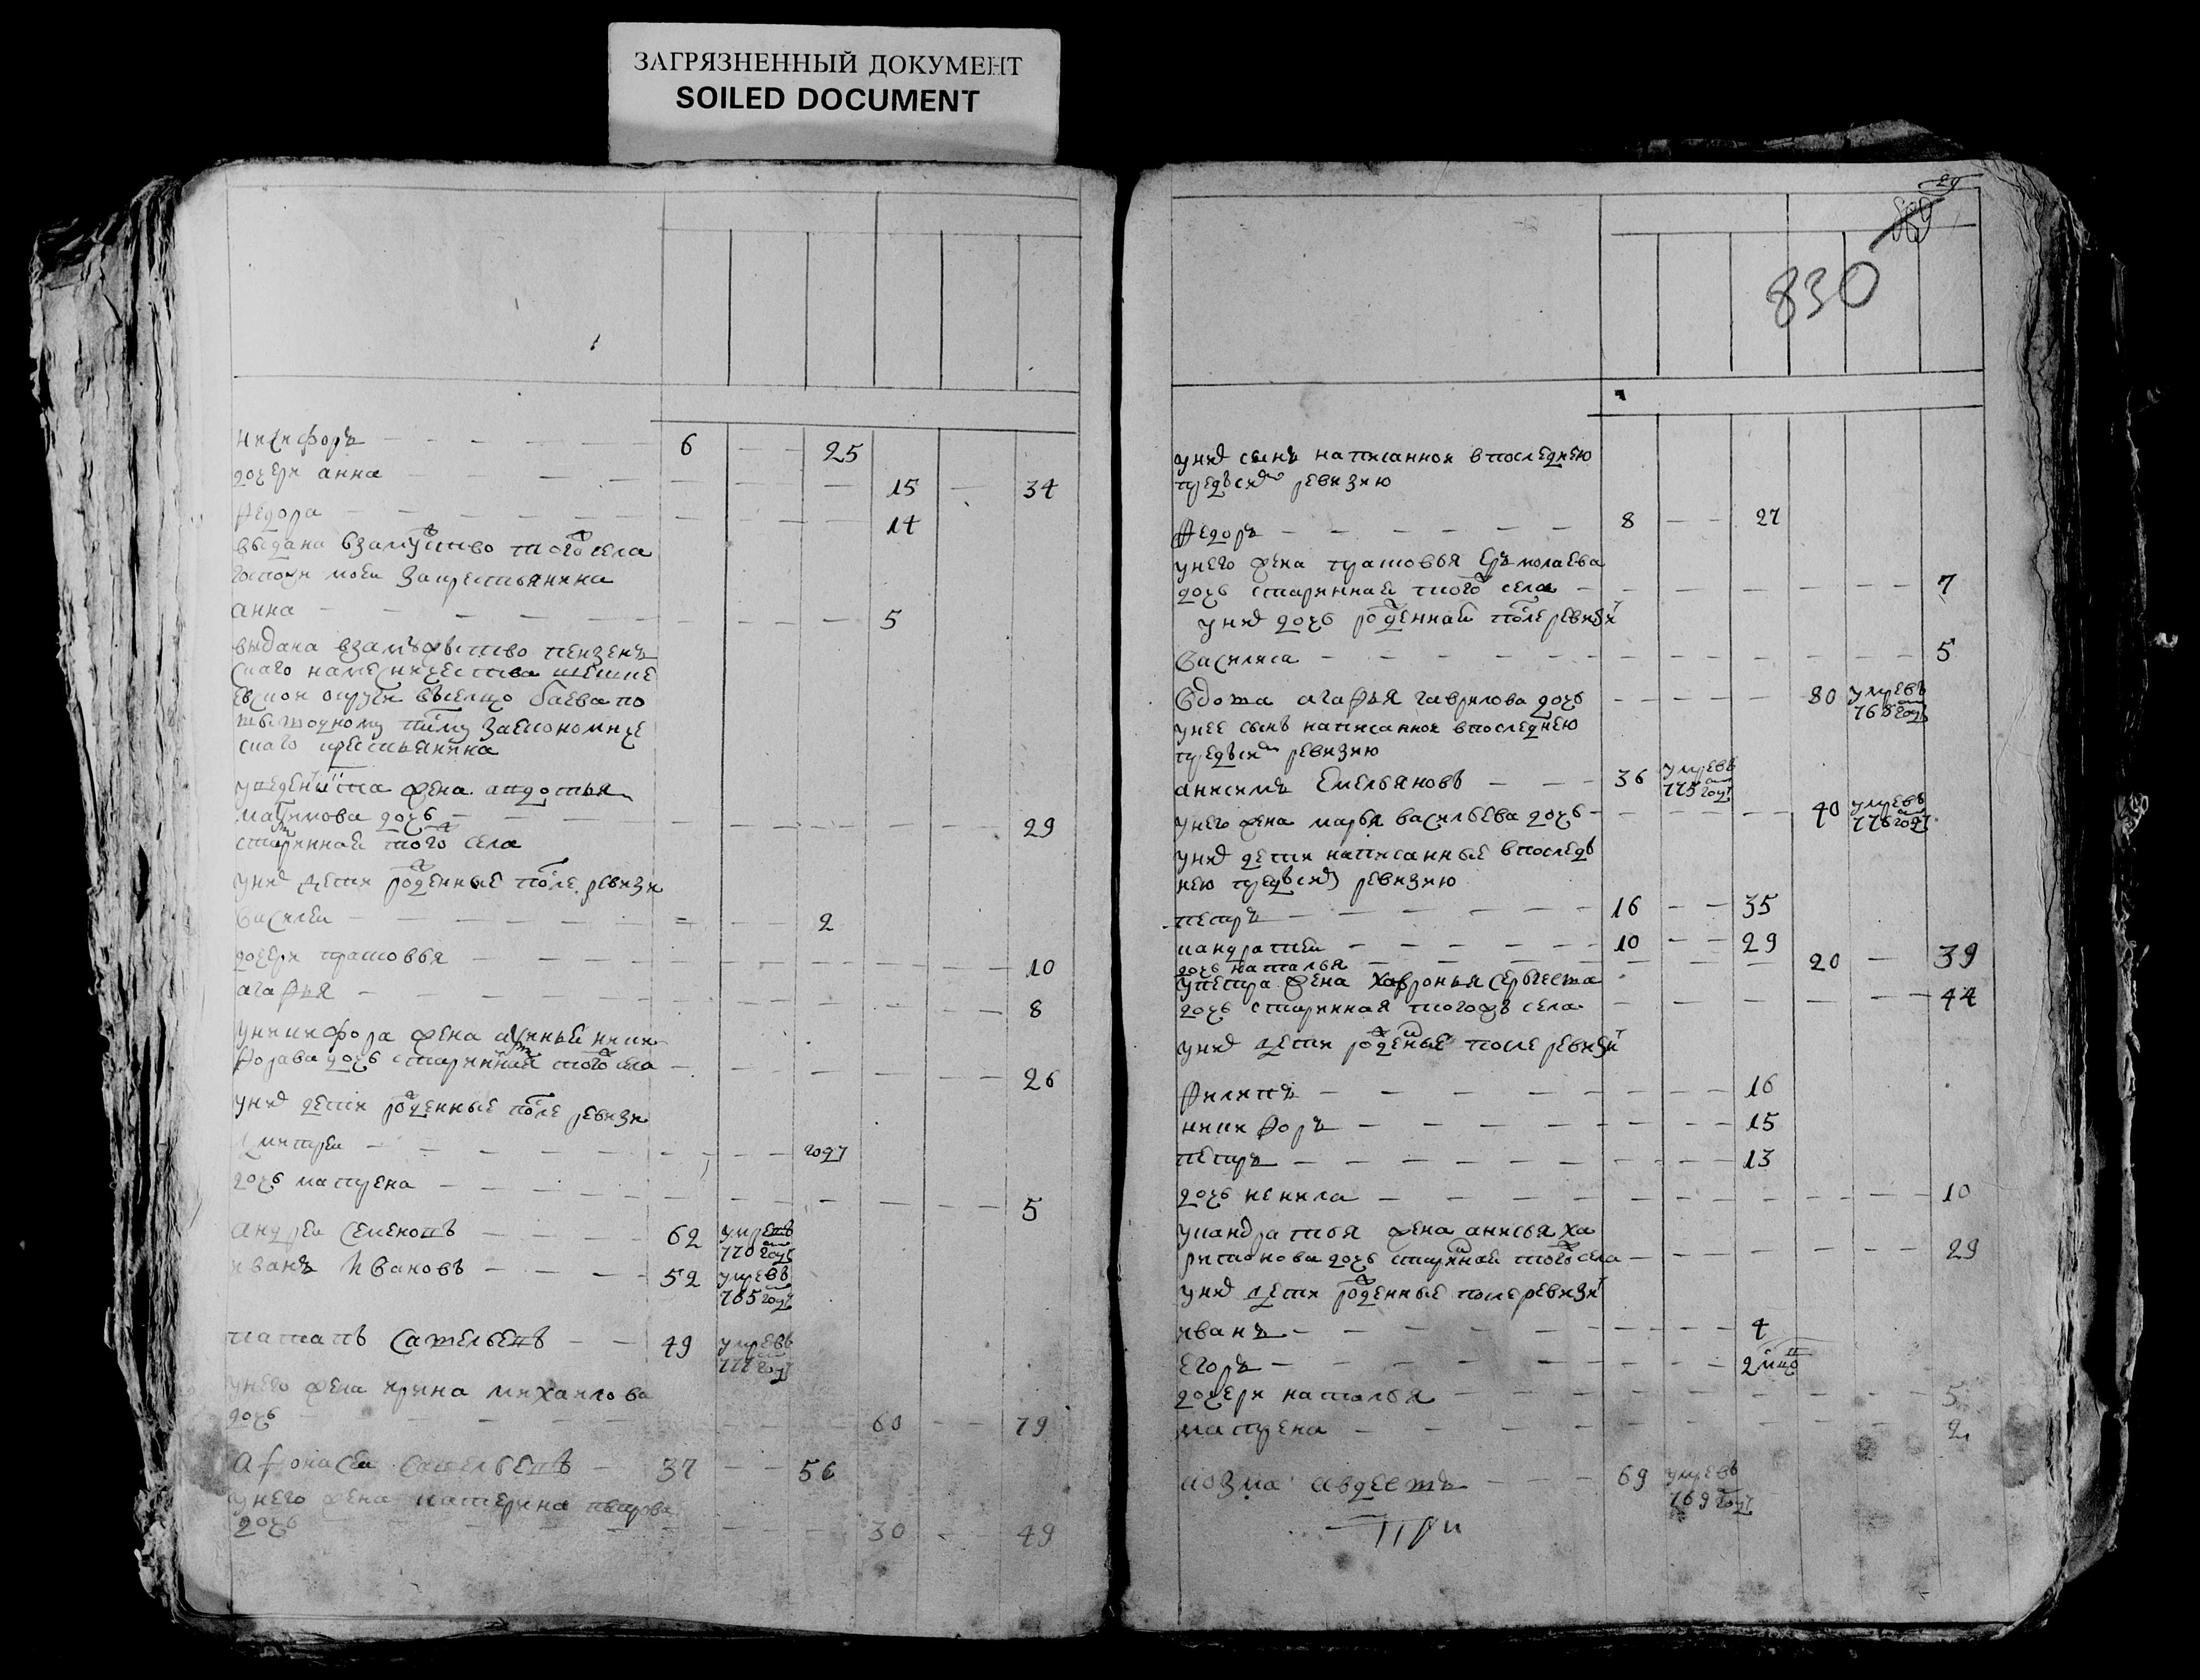 ЗАГРЯЗНЕННЫЙ ДОКУМЕНТ
SOILED DOCUMENT
никифоръ 6 25
дочери анна 15 34
федора 14
выдана взамужство того села
анна 5
выдана взамужьство пензенъ
скаго наместничества шешке
евской округи въселцо баева по
крестьянина
жена авдотья
максимова дочь 29
старинная того села
уних дети рожденные после ревизи
василеи 2
дочери прасковья 10
агафья 8
уникифора жена аксинья ники
форава дочь старинная того села 26
уних дети рожденные после ревизи
дмитреи году
дочь матрена 5
андреи семеновъ 62 умревъ 770 году
иванъ Ивановъ 52 умревъ 765 году
савельевъ 49 умревъ 777 году
унего жена ирина михаилова
дочь 60 79
Афонасеи савельевъ 37 56
унего жена катерина петрова
дочь 30 49
29
830
уних сынъ написанной впоследнею
предъ сих ревизию
федоръ 8 27
унего жена прасковья еръмолаева
дочь старинная того села 7
уних дочь рожденная после ревизи
василиса 5
вдова агафья гаврилова дочь 80 умревъ 765 году
унее сынъ написанное впоследнею
предъ сим ревизию
анисимъ Емельяновъ 36 умревъ 775 году
унего жена марья васильева дочь 40 умревъ 776 году
уних дети написанные впоследъ
нею предъ сих ревизию
петръ 16 35
кандратеи 10 29
дочь наталья 20 39
упетра жена хавронья сергеева
дочь старинная тогожъ села 44
уних дети рожденые после ревизи
филипъ 16
никифоръ 15
петръ 13
дочь ненила 10
укандратья жена анисья ха
ритонова дочь старинная того села 29
уних дети рожденные после ревизи
иванъ 4
егоръ 2
дочери наталья 5
матрена 2
козма авдеевъ 69 умревъ 769 году